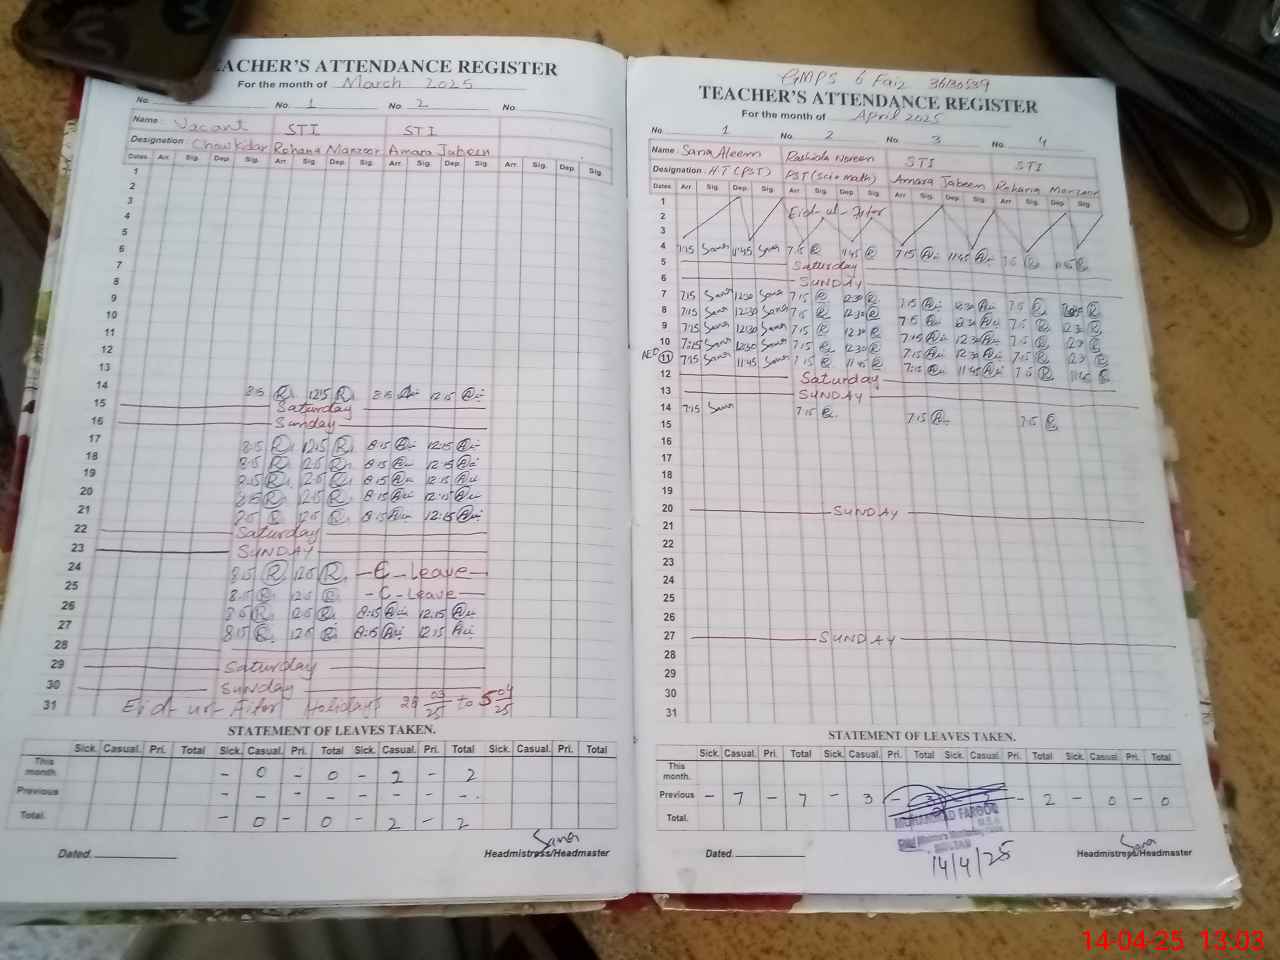 TEACHER'S ATTENDANCE REGISTER
For the month of March 2025
No. No. 1 No. 2 No.
Name: Vacant STI STI
Designation: Chowkidar Rohana Manzoor Amara Jabeen
Dates Arr. Sig. Dep. Sig. Arr. Sig. Dep. Sig. Arr. Sig. Dep. Sig. Arr. Sig. Dep. Sig.
1
2
3
4
5
6
7
8
9
10
11
12
13
14 8:15 R 12:15 R 8:15 12:15
15 Saturday
16 Sunday
17 8:15 R 12:15 R 8:15 12:15
18 8:15 R 12:15 R 8:15 12:15
19 8:15 R 12:15 R 8:15 12:15
20 8:15 R 12:15 R 8:15 12:15
21 8:15 R 12:15 R 8:15 12:15
22 Saturday
23 SUNDAY
24 8:15 R 12:15 R C-Leave
25 8:15 R 12:15 R C-Leave
26 8:15 R 12:15 R 8:15 12:15
27 8:15 R 12:15 R 8:15 12:15
28
29 Saturday
30 Sunday
31 Eid-ul-Fitar Holidays 28 03/25 to 5 04/25
STATEMENT OF LEAVES TAKEN.
Sick. Casual. Pri. Total Sick. Casual. Pri. Total Sick. Casual. Pri. Total Sick. Casual. Pri. Total
This month. - 0 - 0 - 2 - 2
Previous - - - - - - - -
Total. - 0 - 0 - 2 - 2
Sana
Dated. Headmistress/Headmaster
GMPS 6 Faiz 36130539
TEACHER'S ATTENDANCE REGISTER
For the month of April 2025
No. 1 No. 2 No. 3 No. 4
Name: Sana Aleem Rashida Noreen STI STI
Designation: H.T (PST) PST (Sci+math) Amara Jabeen Rohana Manzoor
Dates Arr Sig. Dep. Sig. Arr Sig. Dep Sig. Arr Sig. Dep. Sig. Arr Sig. Dep Sig.
1
2 Eid-ul-Fitar
3
4 7:15 Sana 11:45 Sana 7:15 11:45 7:15 11:45 7:15 11:45
5 Saturday
6 SUNDAY
7 7:15 Sana 12:30 Sana 7:15 12:30 7:15 12:30 7:15 R R
8 7:15 Sana 12:30 Sana 7:15 12:30 7:15 12:30 7:15 R 12:30 R
9 7:15 Sana 12:30 Sana 7:15 12:30 7:15 12:30 7:15 R 12:30 R
10 7:15 Sana 12:30 Sana 7:15 12:30 7:15 12:30 7:15 R 12:30 R
AEO 11 7:15 Sana 11:45 Sana 7:15 11:45 7:15 11:45 7:15 R 11:45 R
12 Saturday
13 SUNDAY
14 7:15 Sana 7:15 7:15 7:15
15
16
17
18
19
20 SUNDAY
21
22
23
24
25
26
27 SUNDAY
28
29
30
31
STATEMENT OF LEAVES TAKEN.
Sick. Casual. Pri. Total Sick. Casual. Pri. Total Sick. Casual. Pri. Total Sick. Casual. Pri. Total
This month.
Previous - 7 - 7 - 3 - - 2 - 0 - 0
Total.
MUHAMMAD FAROOQ
14/4/25
Sana
Dated. Headmistress/Headmaster
14-04-25 13:03